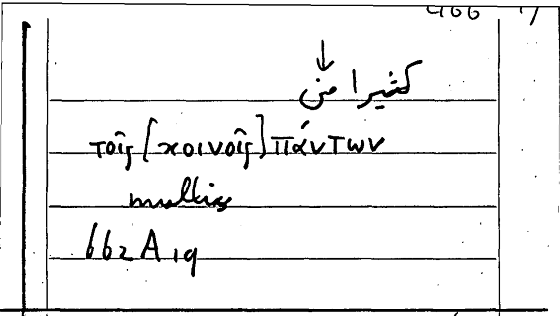 ↓
كثيرا من
τοῖς [κοινοῖς] πάντων
multis
662 A 19